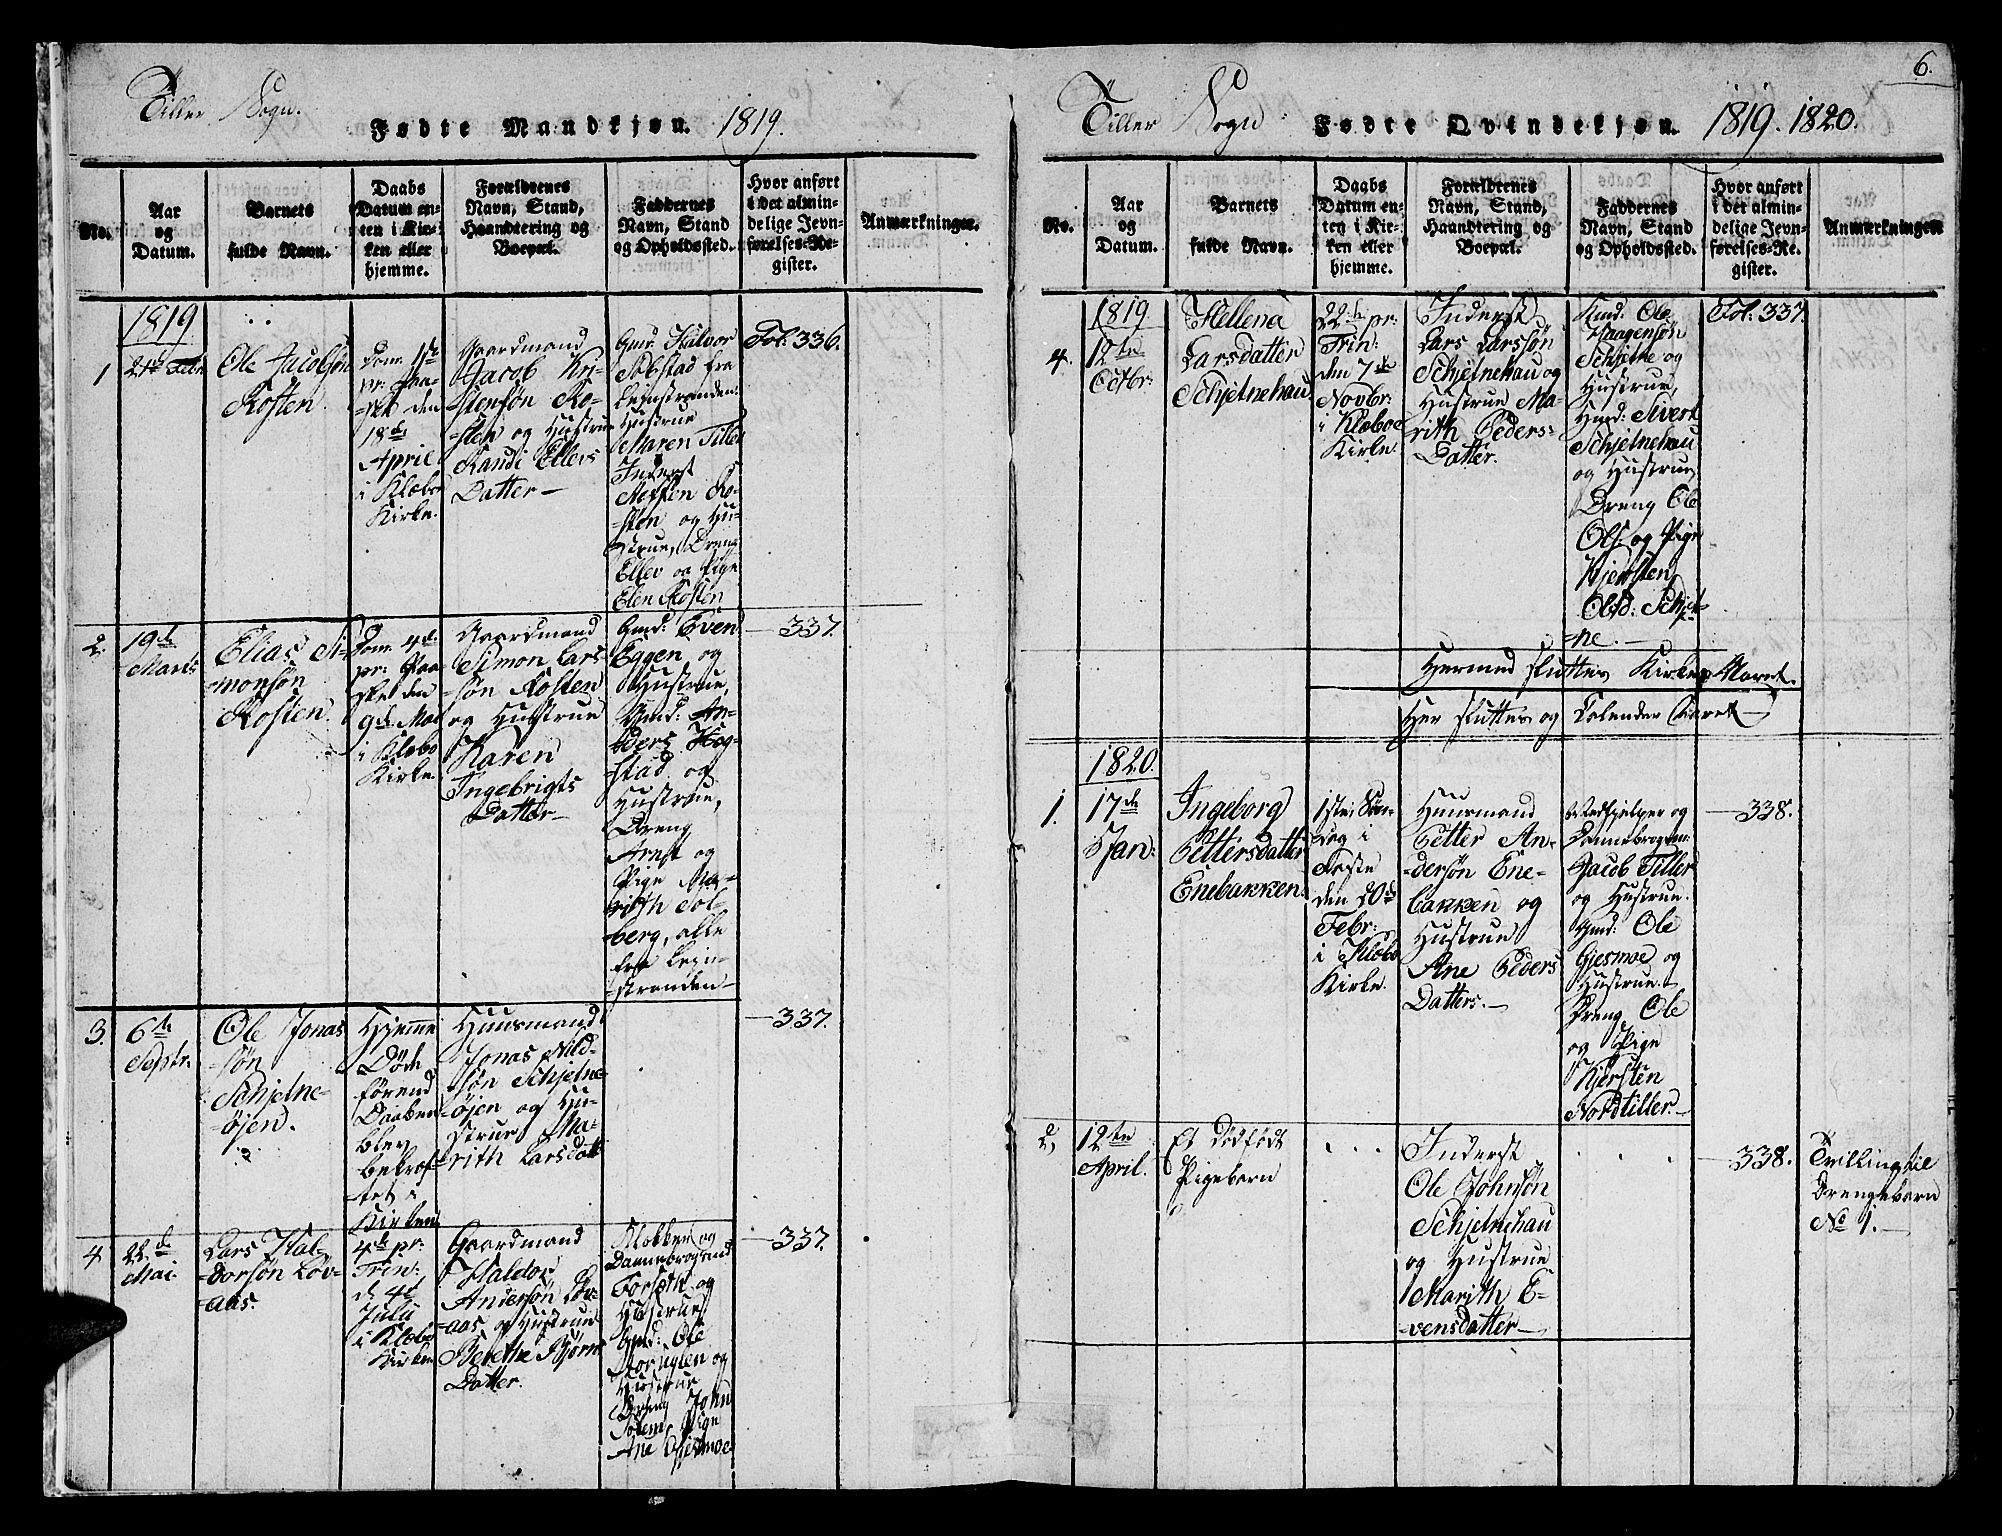 Tiller Sogn.
Fødte Mandkjøn. 1819.
No.
Aar
og
Datum.
Barnets
fulde Navn.
Daabs
Datum en-
ten i Kir-
ken eller
hjemme.
Forældrenes
Navn, Stand,
Haandtering og
Boepæl.
Faddernes
Navn, Stand
og Opholdssted.
Hvor anført
i det almin-
delige Jevn-
førelses-Re-
gister.
Anmærkninger.
1819
1
21de Febr.
Ole Jacobsøn
Rosten.
Dom: 1ste
pr. Paa-
-ske den
18de
April
i Klæbo
Kirke.
Gaardmand
Jacob Kri-
stensøn Ro-
-sten og Hustrue
Randi Ellevs
Datter —
Gmd: Halvor
fra
Leinstranden
Hustrue
Maren Tiller
Inderst
Ro-
-sten og Hu-
strue, Dreng
Ellev og Pige
Elen Rosten
Fol: 336.
2.
19de
Marts
Elias Si-
monsøn
Rosten.
Dom. 4de
pr: Paa-
ske den
9de Mai
i Klæbo
Kirke
Gaardmand
Simon Lars-
søn Rosten
og Hustrue
Karen
Ingebrigts
Datter —
Gmd: Even
Eggen og
Hustrue,
Gmd: An-
ders Hog-
stad og
Hustrue,
Dreng
Arnt og
Pige Ma-
rith Sol-
berg, alle
fra Lein-
stranden —
— 337.
3.
6te
Septr.
Ole Jonas
søn
Schjelne-
øjen.
Hjemme
Døde
førend
Daaben
blev
bekræf-
tet i
Kirken
Huusmand
Jonas Nild-
søn Schjelne-
øjen og Hu-
strue Ma-
rith Larsdatt
— 337.
4
22de
Mai.
Lars Hal-
dorsøn Løv-
aas.
4de pr:
Trin:
d. 4de
Julii
i Klæbo
Kirke
Gaardmand
Haldor
Andersøn Løv-
aas og Hustrue
Berethe Bjørns
Datter.
Klokker og
Dannebrogsmd
Forseth og
Hustrue
Gmd: Ole
og
Hustrue
Dreng John
Solem, Pige
Ane Gjesmoe
— 337.
6.
Tiller Sogn
Fødte Qvindekjøn. 1819. 1820.
No.
Aar
og
Datum.
Barnets
fulde Navn.
Daabs
Datum en-
ten i Kir-
ken eller
hjemme.
Forældrenes
Navn, Stand,
Haandtering og
Boepæl.
Faddernes
Navn, Stand
og Opholdssted.
Hvor anført
i det almin-
delige Jevn-
førelses-Re-
gister.
Anmærkninger.
1819
4.
12te
Octbr:
Hellena
Larsdatter
Schjelnehau
22de pr:
Trin:
den 7de
Novbr:
i Klæboe
Kirke
Inderst
Lars Larssøn
Schjelnehau og
Hustrue Ma-
rith Peders-
Datter.
Gmd: Ole
Haagensøn
Schjelne og
Hustrue,
Hmd: Sivert
Schjelnehau
og Hustrue,
Dreng Ole
Ols: og Pige
Kjersten
Olsd: Schjel-
-ne. —
Fol: 337
Hermed sluttes Kirke-Aaret.
Her sluttes og Calender Aaret —
1820.
1.
17de
Jan:
Ingeborg
Pettersdatter
Enebakken.
1ste Søn-
dag i
Faste
den 20de
Febr:
i Klæbo
Kirke.
Huusmand
Petter An-
dersøn Ene-
bakken og
Hustrue
Ane Peders
Datter. —
Medhjelper og
Dannebrogsm:
Jacob Tiller
og Hustrue.
Gmd: Ole
Gjesmoe og
Hustrue. —
Dreng Ole
og Pige
Kjersten
Nordtiller. —
— 338.
2,
12te
April.
Et dødfødt
Pigebarn
. . .
Inderst
Ole Johnsøn
Schjelnehau
og Hustrue
Marith E-
vensdatter —
. . .
— 338.
Tvilling til
Drengebarn
No 1. —